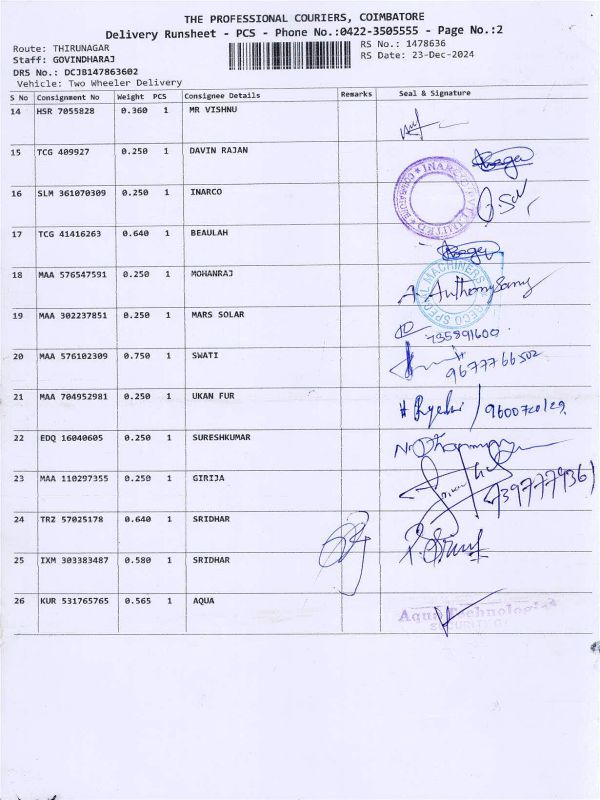 THE PROFESSIONAL COURIERS, COIMBATORE
Delivery Runsheet - PCS - Phone No.:0422-3505555 - Page No.:2
Route: THIRUNAGAR
RS No.: 1478636
Staff: GOVINDHARAJ
RS Date: 23-Dec-2024
DRS No.: DCJB147863602
Vehicle: Two Wheeler Delivery
S No Consignment No Weight PCS Consignee Details Remarks Seal & Signature
14 HSR 7055828 0.360 1 MR VISHNU
15 TCG 409927 0.250 1 DAVIN RAJAN
16 SLM 361070309 0.250 1 INARCO
INARCO PVT LIMITED
17 TCG 41416263 0.640 1 BEAULAH
18 MAA 576547591 0.250 1 MOHANRAJ
A. Anthonysamy
SPECIAL MACHINERS
19 MAA 302237851 0.250 1 MARS SOLAR
735891600
20 MAA 576102309 0.750 1 SWATI
9677766502
21 MAA 704952981 0.250 1 UKAN FUR
22 EDQ 16040605 0.250 1 SURESHKUMAR
23 MAA 110297355 0.250 1 GIRIJA
24 TRZ 57025178 0.640 1 SRIDHAR
25 IXM 303383487 0.580 1 SRIDHAR
26 KUR 531765765 0.565 1 AQUA
Aqua Technologies